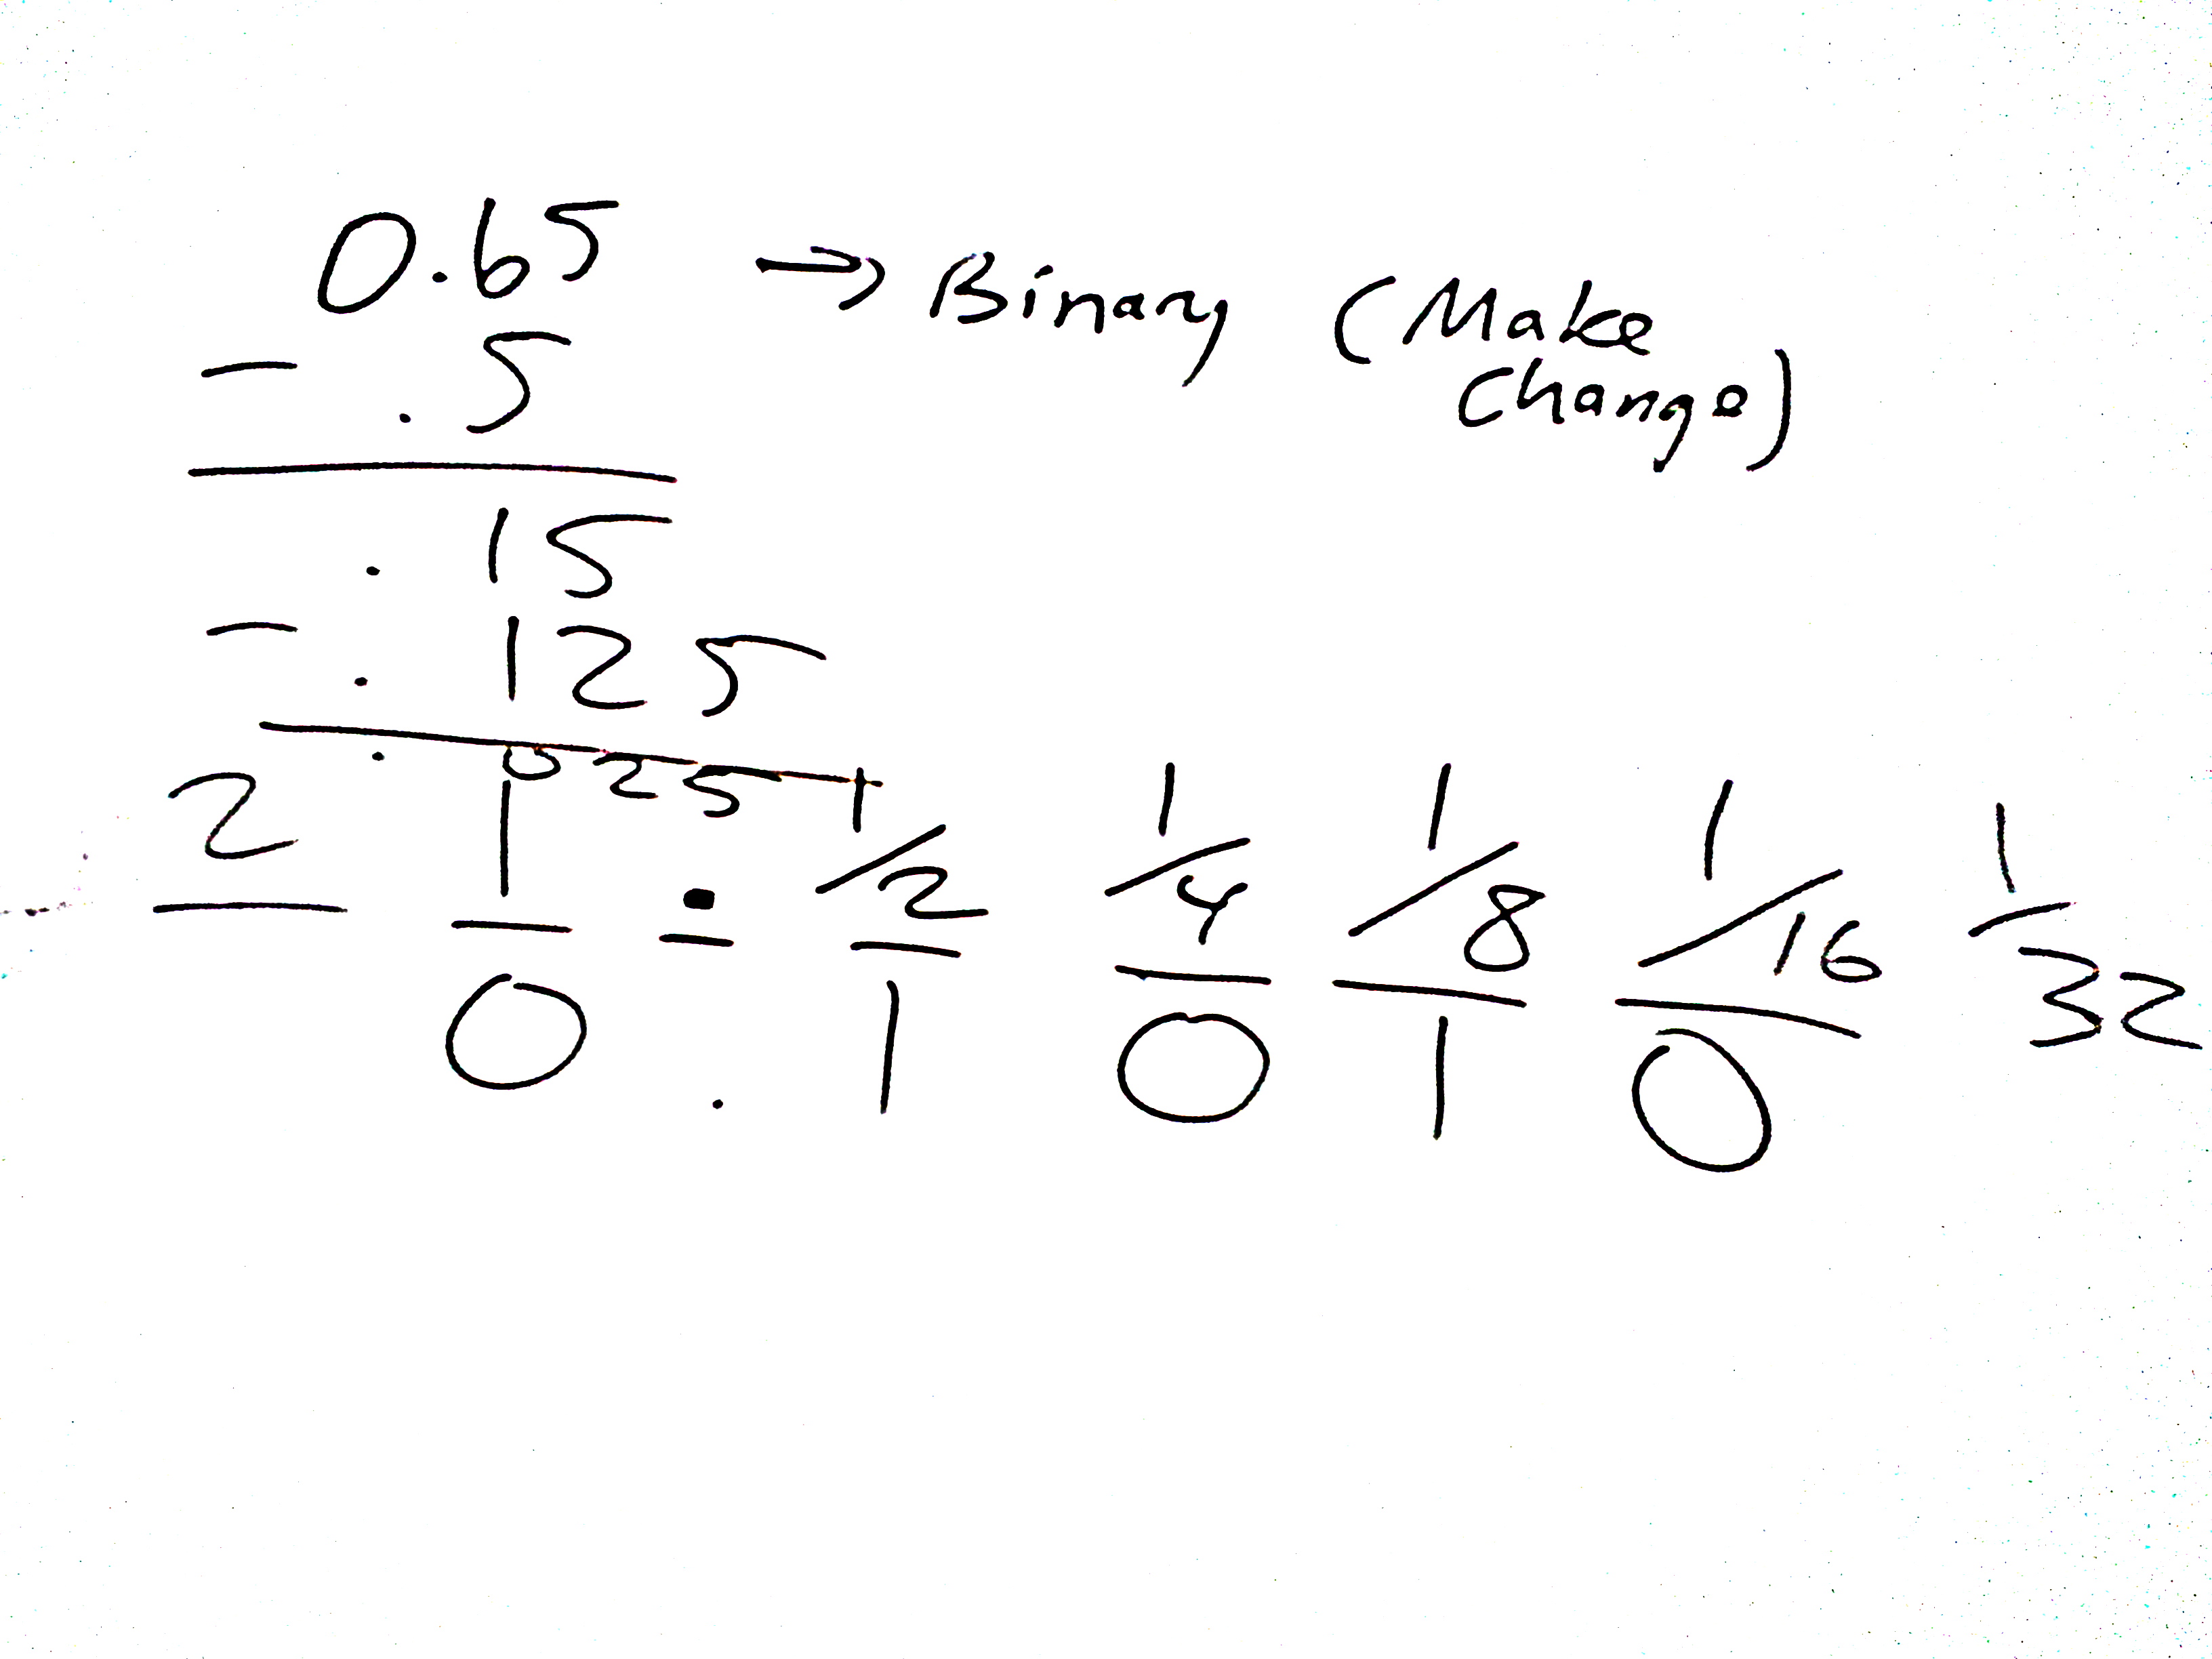 0.65 → Binary (Make
Change)
- .5
.15
- .125
.025
2 1 . 1/2 1/4 1/8 1/16 1/32
0 . 1 0 1 0